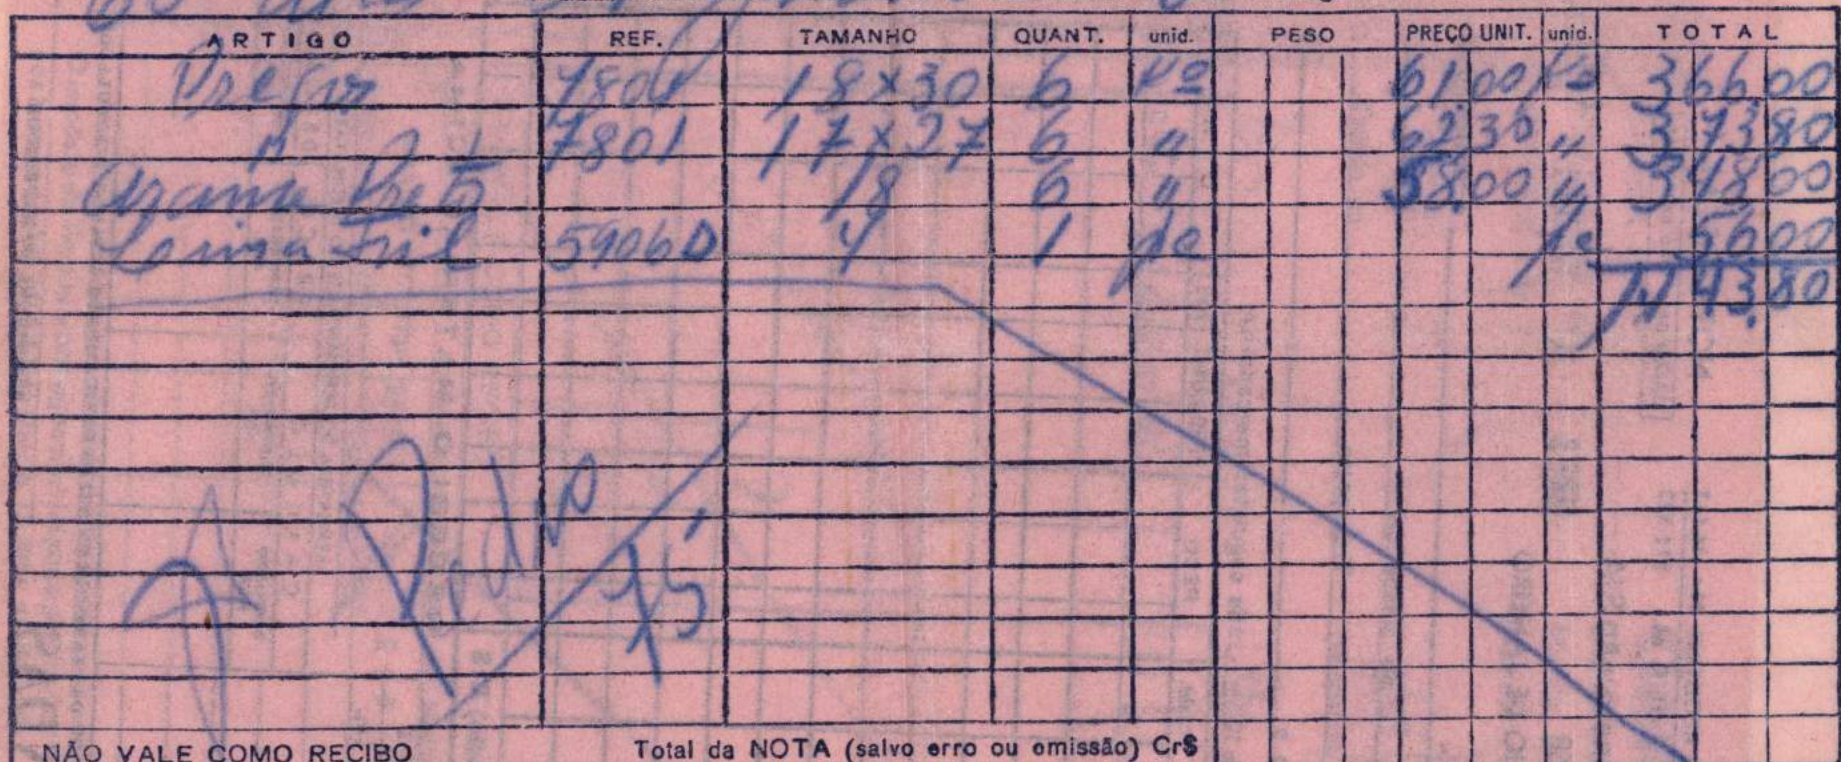 ARTIGO REF. TAMANHO QUANT. unid. PESO PREÇO UNIT. unid. TOTAL
Pregos 7801 18x30 6 Kº 61,00 Kº 366,00
" 7801 17x27 6 " 62,30 " 373,80
Arame Preto 18 6 " 58,00 " 348,00
5906D 4 1 pc pc 56,00
1143,80
NÃO VALE COMO RECIBO Total da NOTA (salvo erro ou omissão) Cr$